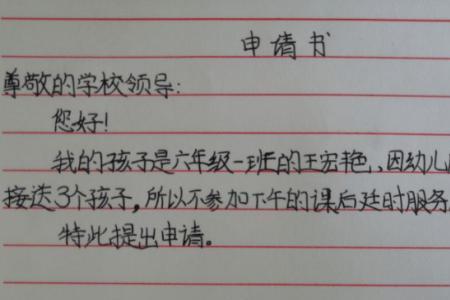 申请书
尊敬的学校领导:
您好!
我的孩子是六年级一班的王宏艳、因幼儿
接送3个孩子,所以不参加下午的课后延时服务
特此提出申请。